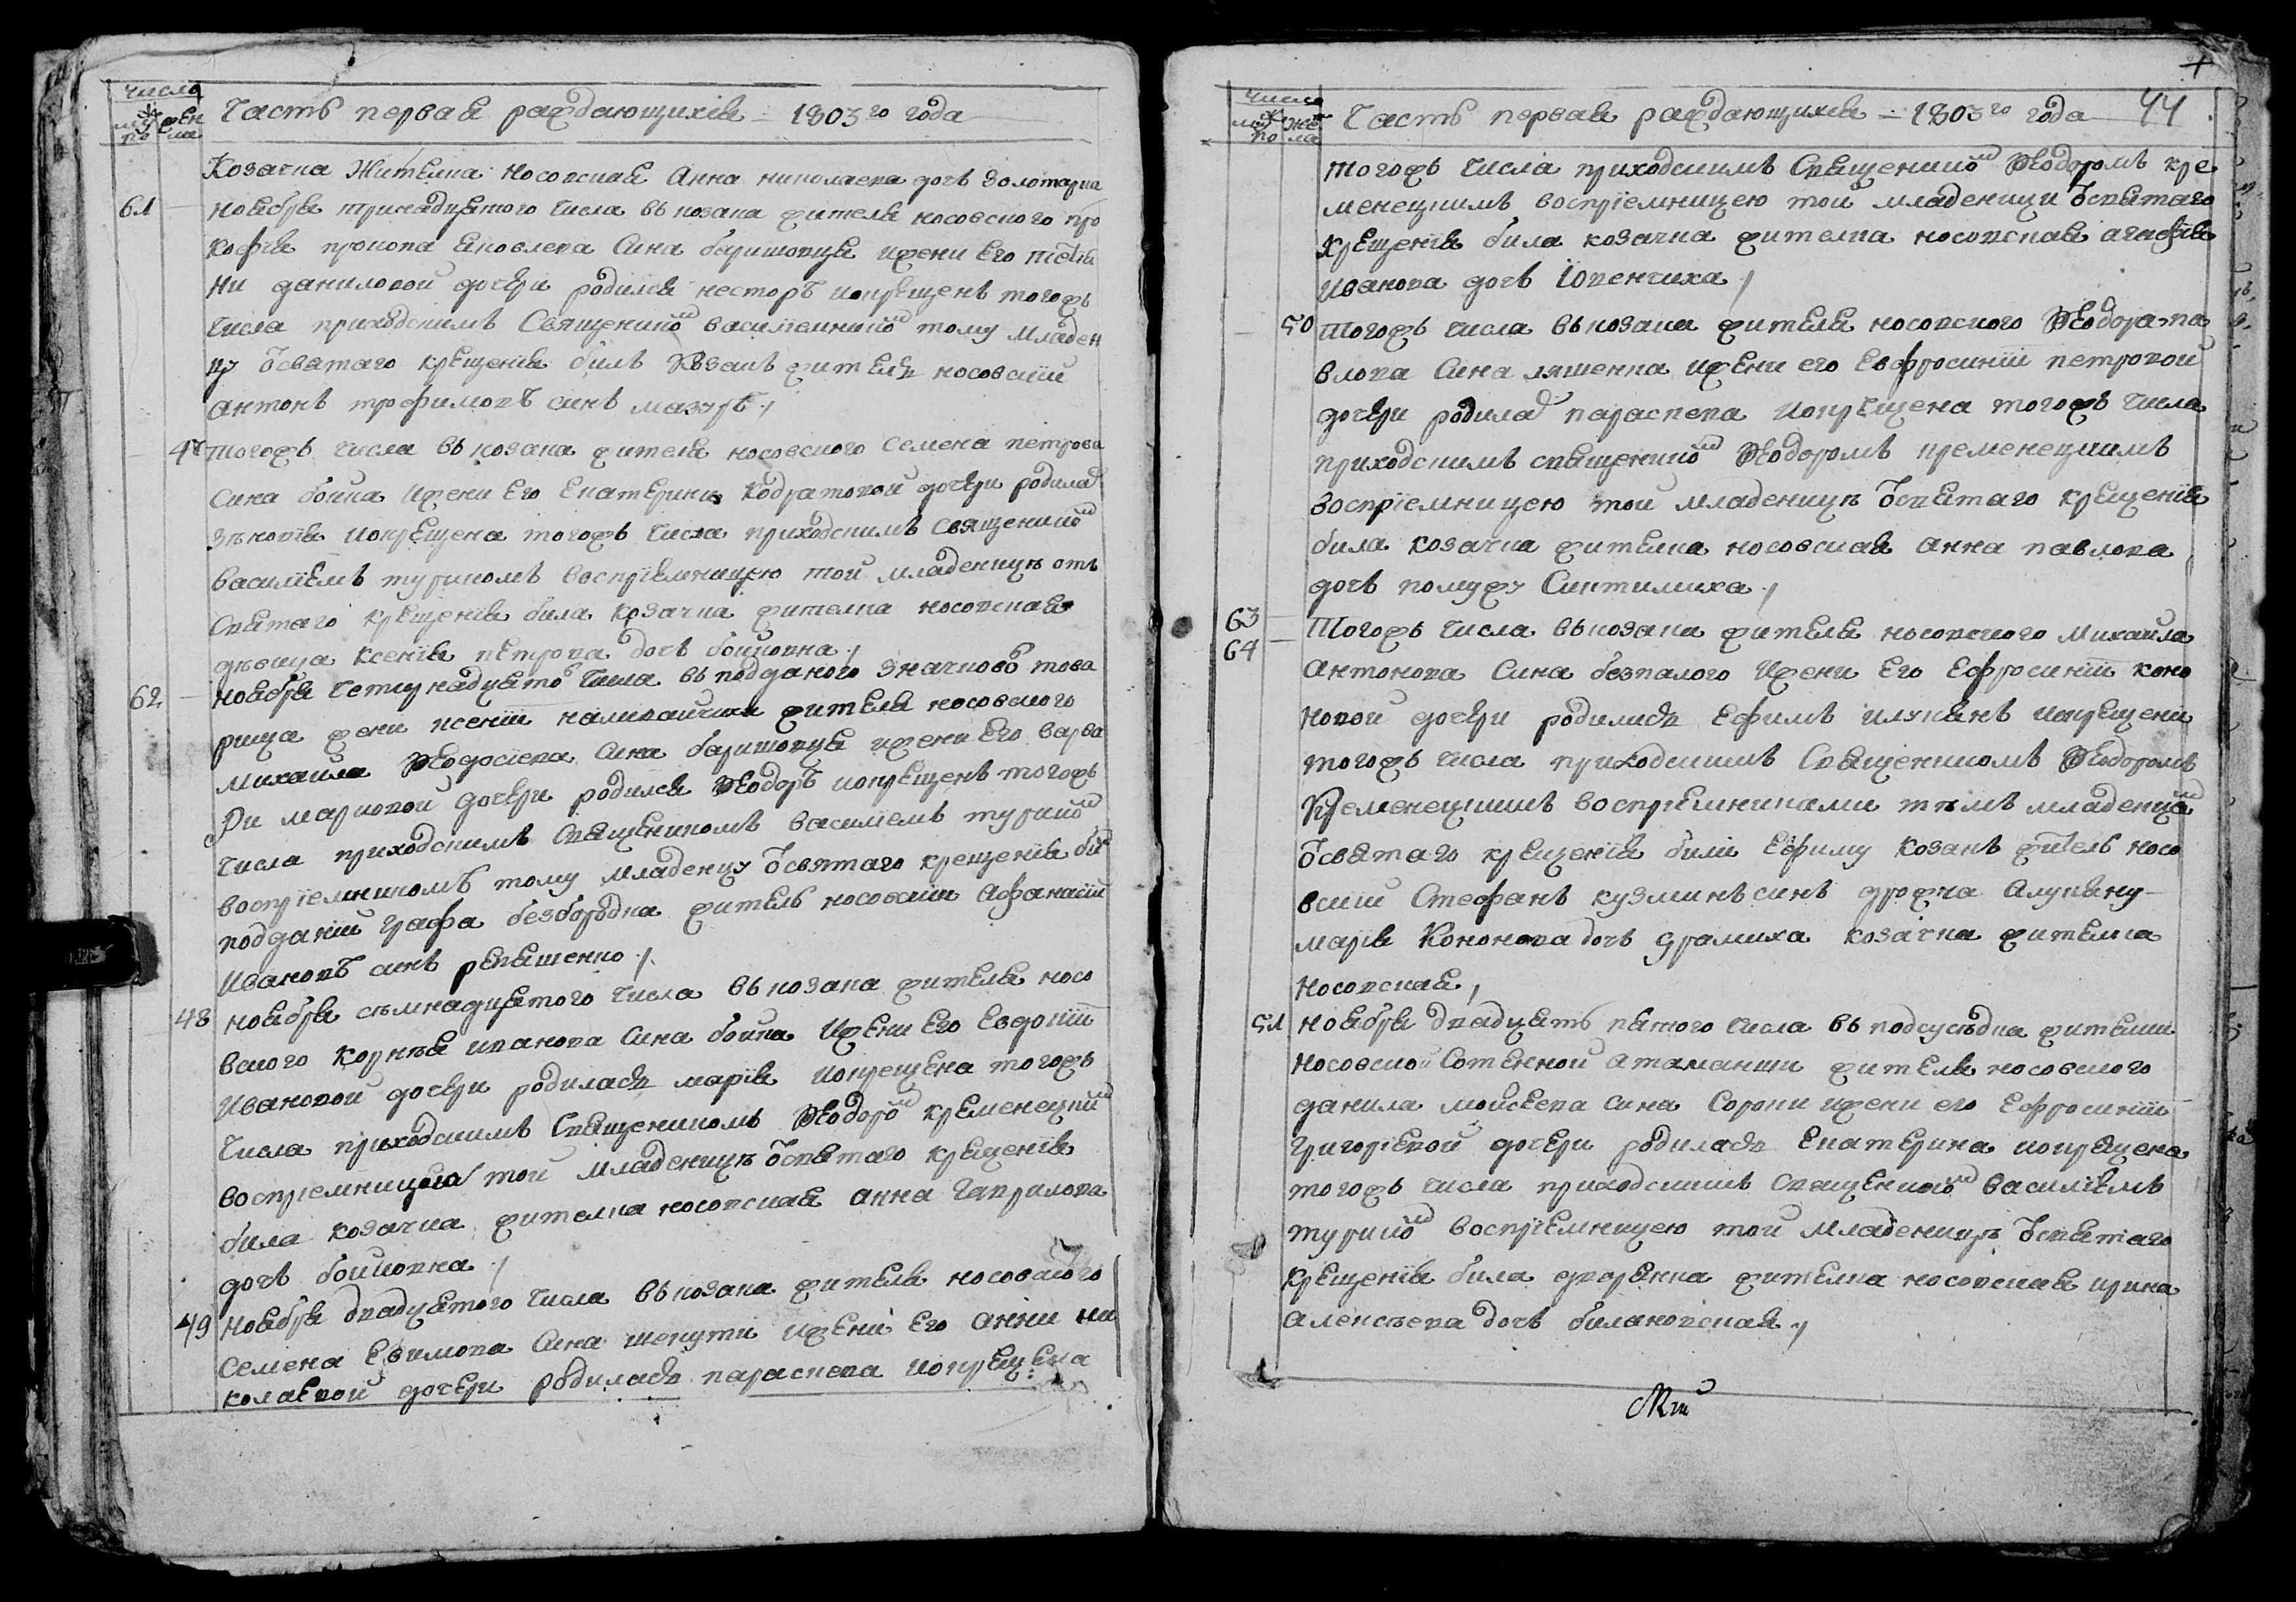 число
муж жен
по ла
Часть первая раждающихся 1803го года
Козачка жителка носовская Анна николаева дочь Золотарка
61 ноября тринадцятого числа въ козака жителя носовского про
кофия прокопа яковлева сина баришовця ижени его
ни даниловой дочери родился несторъ иокрещенъ тогожъ
числа приходскимъ Священником тому младен
цу ѿсвятаго крещения билъ козакъ житель носовскій
антонъ трофимовъ синъ мазуръ /
47 тогожъ числа въ козака жителя носовского семена петрова
сина бойка ижени его екатерини кодратовой дочери родилас
зѣновія иокрещена тогожъ числа приходскимъ священником
василіемъ турикомъ воспріемницею той младеницѣ отъ
святаго крещенія била козачка жителка носовская
дѣвица ксенія петрова дочь бойковна /
62 ноября четирнадцято числа въ подданого значково това
риша жени ксеніи жителя носовского
михаила Ѳеодосіева сина баришовця ижени его варва
ри марковой дочери родился Ѳеодоръ иокрещенъ тогожъ
числа приходскимъ священикомъ василіемъ турико
воспріемникомъ тому младенцу ѿсвятаго крещенія бил
подданій графа безбородка житель носовскіи афанасій
Ивановъ синъ репяшенко /
48 ноября сѣмнадцятого числа въ козака жителя носо
вского корнѣя иванова сина бойка ижени его евдокіи
Ивановой дочери родилась марія иокрещена тогожъ
числа приходскимъ священикомъ Ѳеодором кременецким
воспріемницею той младеницѣ ѿсвятаго крещенія
била козачка жителка носовская анна гаврилова
дочь бойковна /
49 ноября двадцятого числа въ козака жителя носовского
семена евимова сина шепути ижени его анни ни
колаевой дочери родилась параскева иокрещена
число
муж жен
по ла
Часть первая раждающихся 1803го года 44
тогожъ числа приходскимъ Священником Ѳеодоромъ кре
менецкимъ воспріемницею той младеници ѿсвятаго
крещенія била козачка жителка носовская агафія
иванова дочь Юренчиха /
50 тогожъ числа въ козака жителя носовского Ѳеодора па
влова сина ляшенка ижени его евфросиніи петровой
дочери родилас параскева иокрещена тогожъ числа
приходскимъ священником Ѳеодоромъ кременецкимъ
воспріемницею той младеницѣ ѿсвятаго крещенія
била козачка жителка носовская анна павлова
дочь помужу Сиктимиха /
63
64 Тогожъ числа въ козака жителя носовского михаила
антонова сина безпалого ижени его ефросиніи коно
новой дочери родились ефимъ илукянъ иокрещени
тогожъ числа приходскимъ священникомъ Ѳеодоромъ
Кременецкимъ воспріемниками тѣмъ младенцам
ѿсвятаго крещенія били ефиму козакъ житель носо
вскіи Стефанъ кузминъ синъ дрожча алукяну
марія Кононова дочь драмиха козачка жителка
носовская /
51 ноября двадцять пятого числа въ подсусѣдка жителки
носовской сотенной атаманши жителя носовского
данила мойсеева сина Сороки ижени его ефросиніи
григоріевой дочери родилась екатерина иокрещена
тогожъ числа приходскимъ священником василіемъ
турико воспріемницею той младеницѣ ѿсвятаго
крещенія била дворянка жителка носовская ирина
алексѣева дочь билановская /